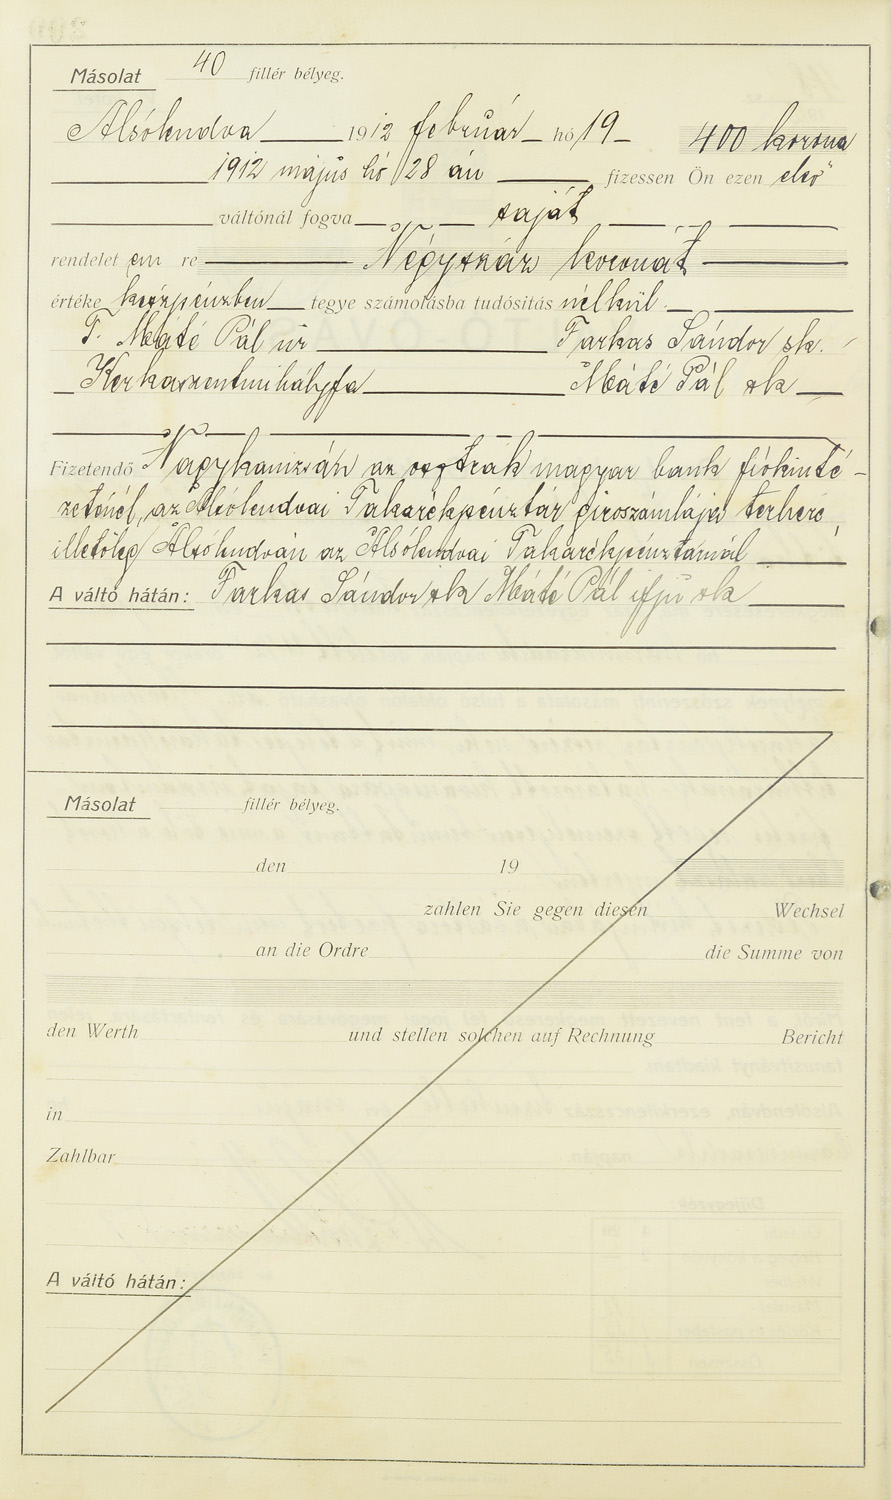 Másolat 40 fillér bélyeg.
Alsólendva 1912 február hó 19 400 korona
1912 május hó 28 án fizessen Ön ezen első
váltónál fogva saját
rendelet em re Négyszáz koronát
értéke készpénzben tegye számolásba tudósitás nélkül.
T. Máté Pál úr Farkas Sándor sk.
Kerkaszentmihályfa Máté Pál sk
Fizetendő Nagykanizsán az osztrák magyar bank fiókinté-
zeténél, az Alsólendvai Takarékpénztár giroszámlája terhére,
illetőleg Alsólendván az Alsólendvai Takarékpénztárnál
A váltó hátán: Farkas Sándor sk Máté Pál ifju sk
Másolat fillér bélyeg.
den 19
zahlen Sie gegen diesen Wechsel
an die Ordre die Summe von
den Werth und stellen solchen auf Rechnung Bericht
in
Zahlbar
A váltó hátán: